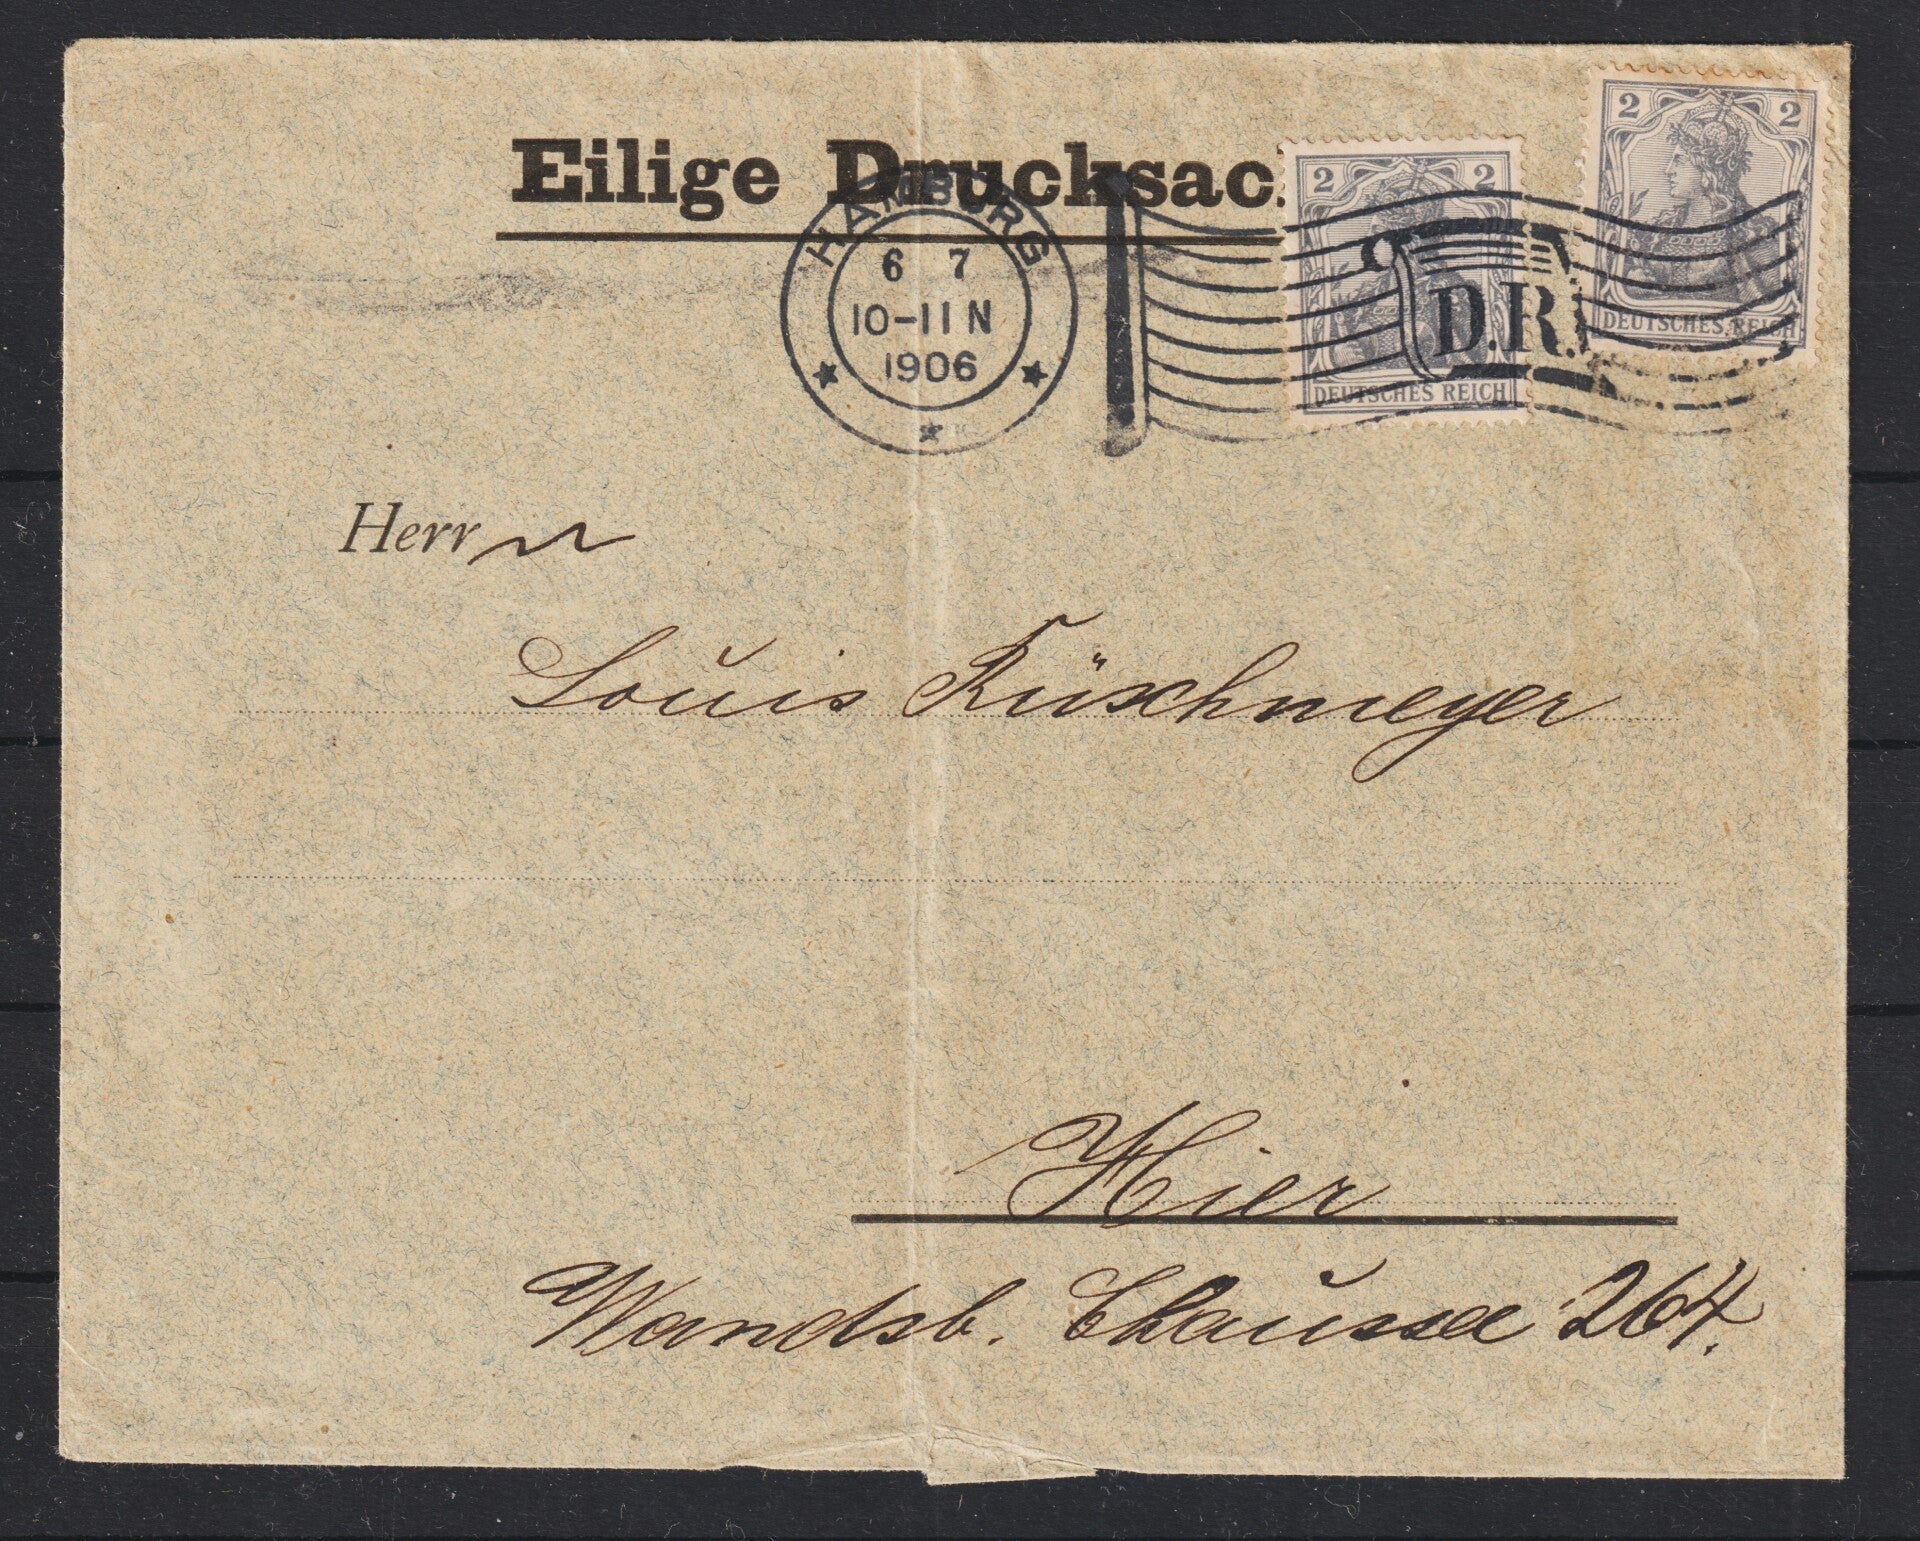 Eilige Drucksac
HAMBURG
6 7
10-11 N
1906
D.R.
2 2
DEUTSCHES REICH
2 2
DEUTSCHES REICH
Herrn
Louis Rüschmeyer
Hier
Wandsb. Chaussee 264.